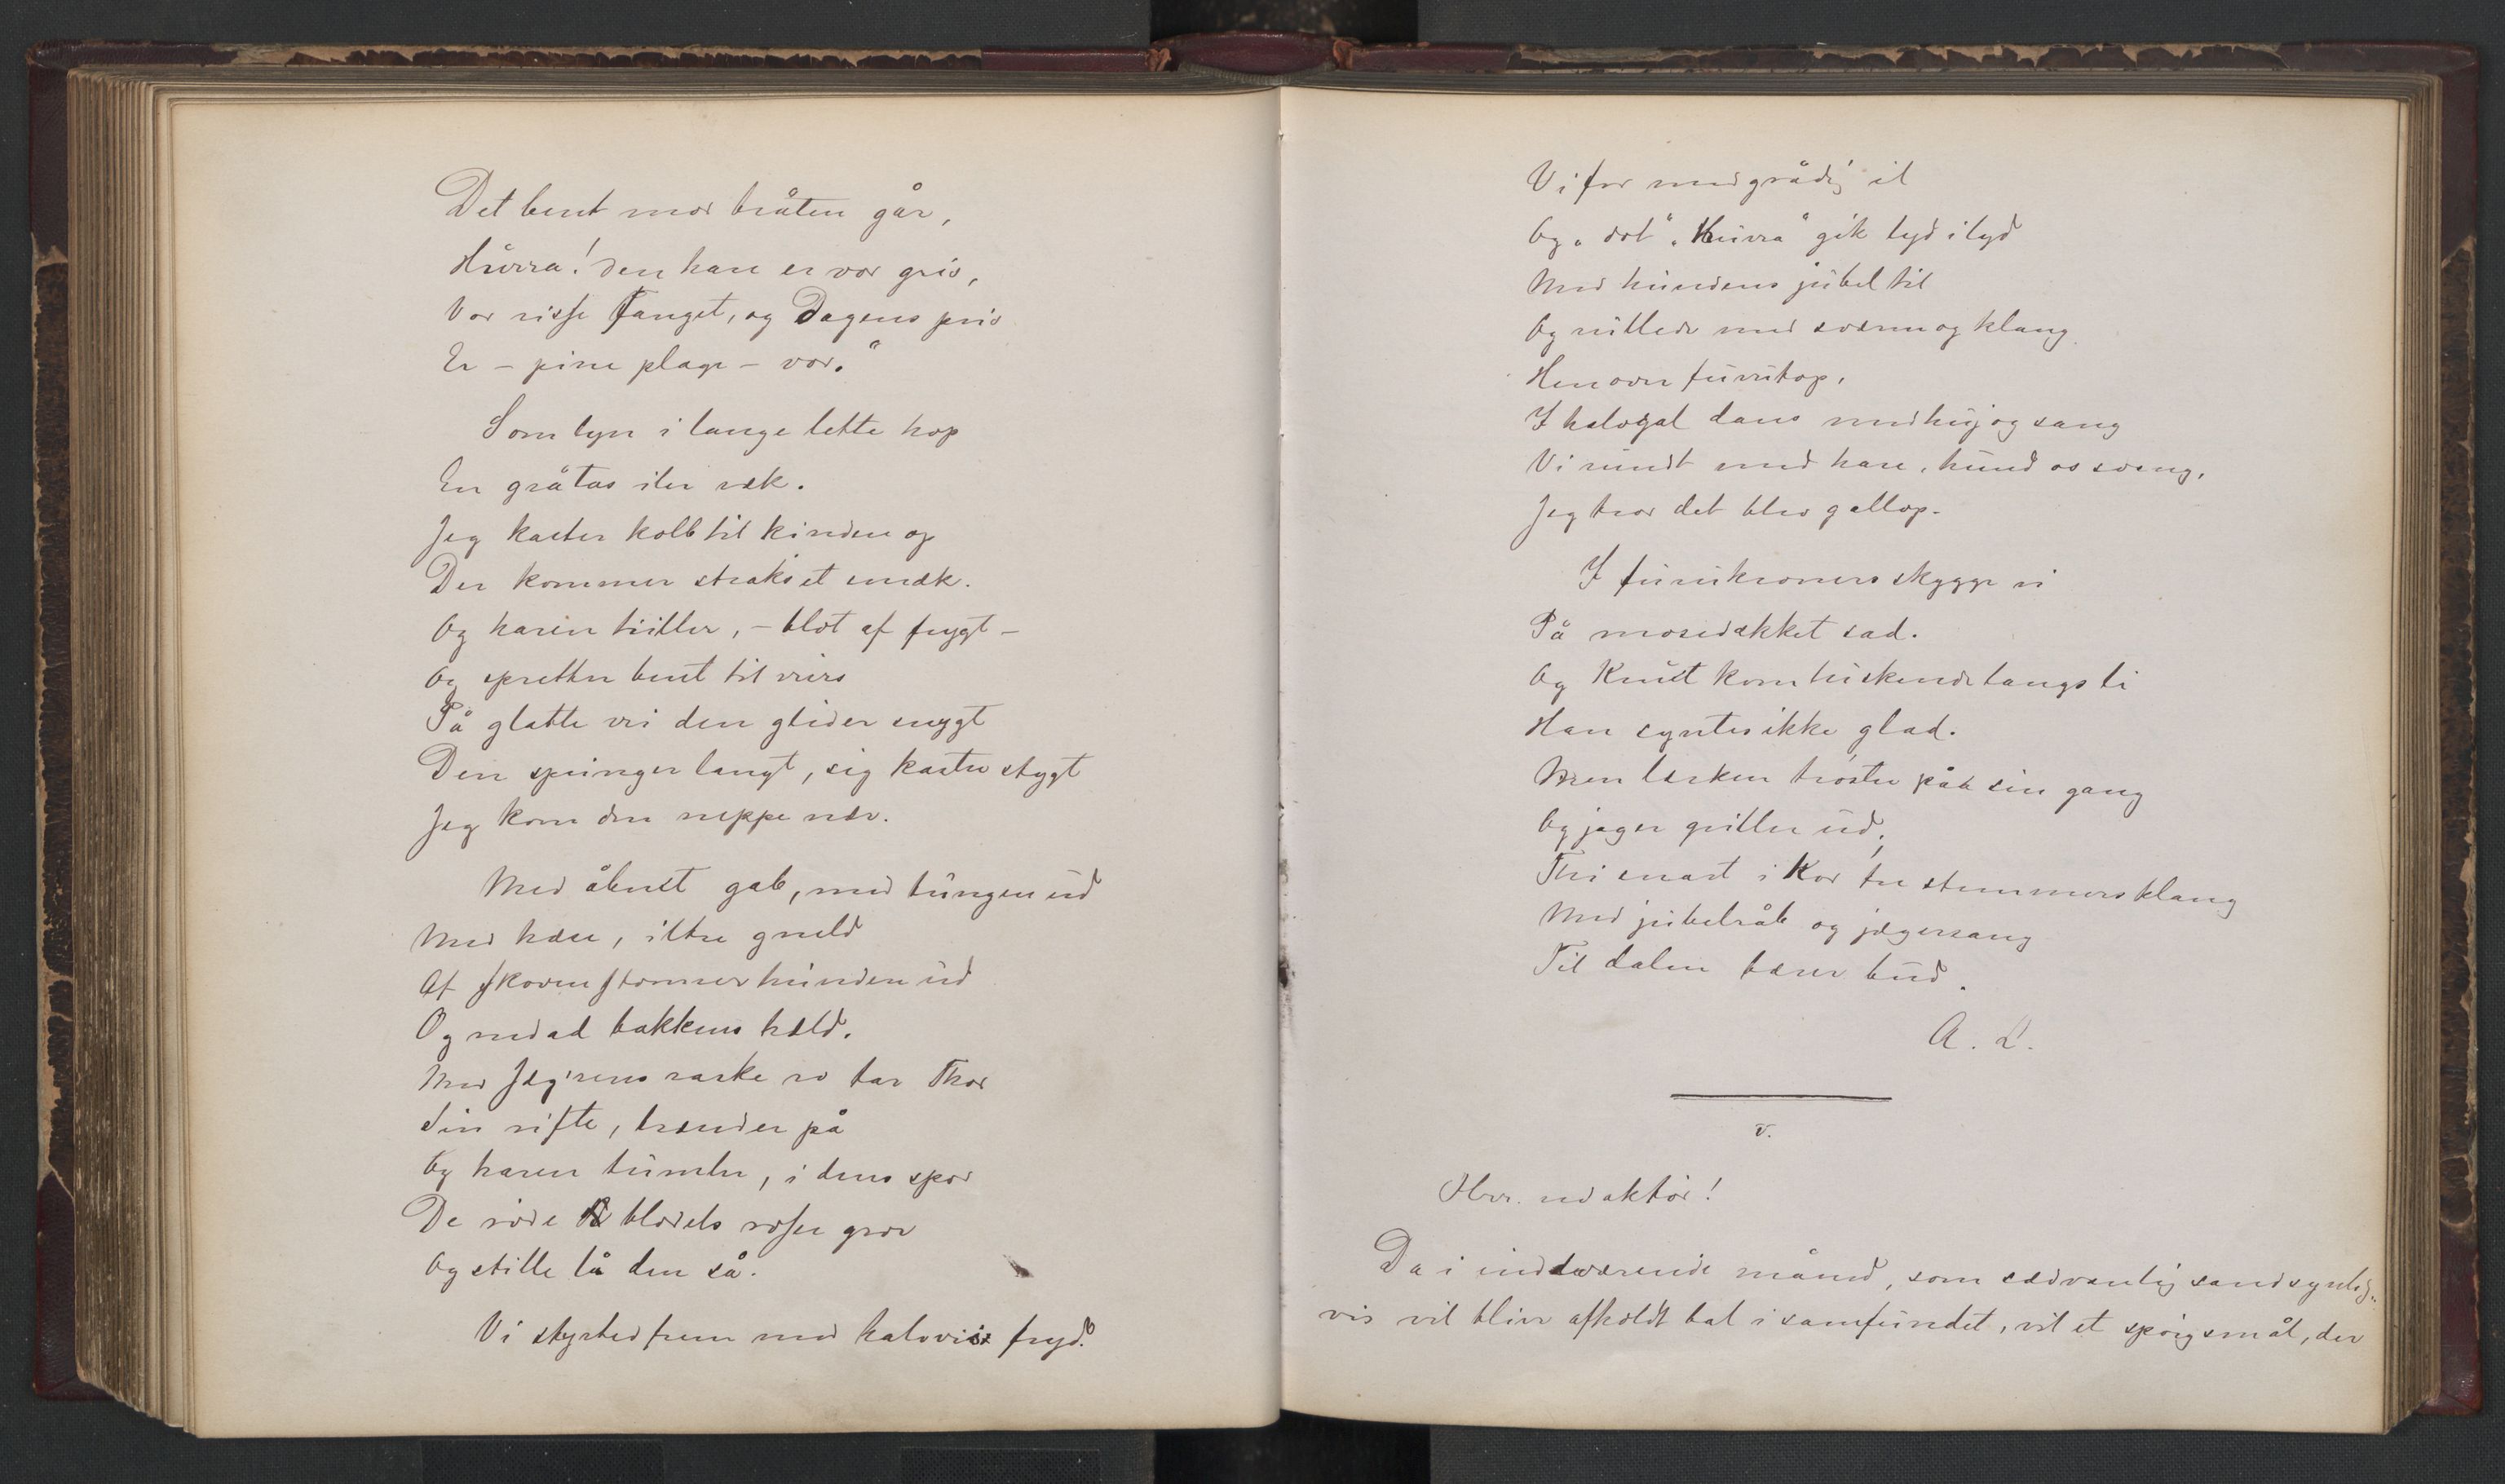 Det bent mod bråten går,
Hurra! den hare er vor gris,
Vor visse Fanget, og Dagens pris
Er – pine plage – vor."
Som lyn i lange lette hop
En gråtas iler væk.
Jeg kaster kolb til kinden op
Der kommer straks et smæk.
Og haren triller, – blot af frygt –
Og spretter bent til veirs
På glatte vei den glider snygt
Den springer langt, sig kaster stygt
Jeg kom den neppe nær.
Med åbnet gab, med tungen ud
Med hæse, iltre gneld
Af skoven stormer hunden ud
Og nedad bakkens held.
Med Jæg'rens raske ro tar Thor
Sin rifte, brænder på
Og haren tumler, i dens spor
De røde blodets roser gror
Og stille lå den så.
Vi styrted frem med halvvild fryd.
Vi for med grådig il
Og "død" "Hurra" gik lyd i lyd
Med hundens jubel til
Og rullede med sværm og klang
Hen over furutop.
I halvgal dans med huj og sang
Vi rundt med hare, hund os svang,
Jeg tror det blev gallop.
I furukroners skygge vi
På mosedækket sad.
Og Knut kom luskende langs li
Han syntes ikke glad.
Men lærken trøster påa sin gang
Og jager griller ud,
Thi snart i Kor tre stemmers klang
Med jubelråb og jægersang
Til dalen bærer bud.
A. L.
V.
Hrr. redaktør!
Da i indeværende måned, som sædvanlig sandsynlig„
vis vil blive afholdt bal i samfundet, vil et spørgsmål, der